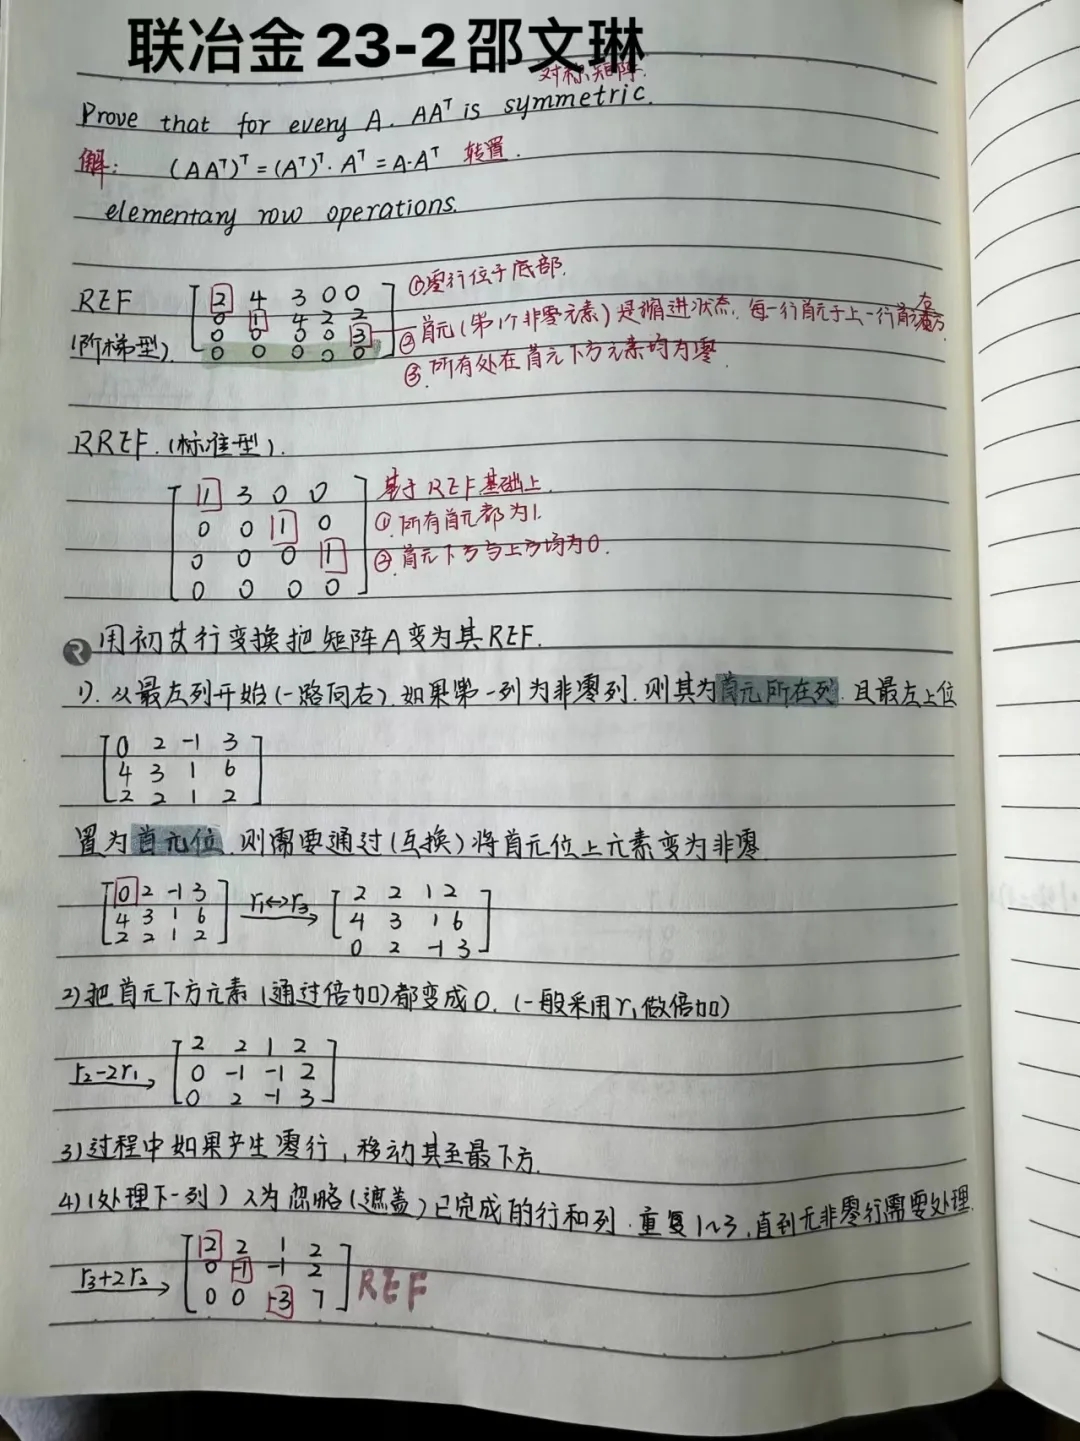 联冶金23-2邵文琳
对称矩阵.
Prove that for every A. AAᵀ is symmetric.
解: (AAᵀ)ᵀ = (Aᵀ)ᵀ· Aᵀ = A·Aᵀ 转置.
elementary row operations.
REF
(阶梯型).
2 4 3 0 0
0 1 4 2 2
0 0 0 0 3
0 0 0 0 0
①零行位于底部.
②首元(第1个非零元素)是缩进状态. 每一行首元于上一行首元右方.
③.所有处在首元下方元素均为零.
RREF.(标准型).
1 3 0 0
0 0 1 0
0 0 0 1
0 0 0 0
基于REF基础上.
①.所有首元都为1.
②.首元下方与上方均为0.
2 用初艾行变换把矩阵A变为其REF.
1). 从最左列开始(一路向右). 如果第一列为非零列. 则其为首元所在列. 且最左上位
0 2 -1 3
4 3 1 6
2 2 1 2
置为首元位. 则需要通过(互换)将首元位上元素变为非零.
0 2 -1 3
4 3 1 6
2 2 1 2
r₁↔r₃
2 2 1 2
4 3 1 6
0 2 -1 3
2)把首元下方元素(通过倍加)都变成0. (一般采用r₁做倍加)
r₂-2r₁
2 2 1 2
0 -1 -1 2
0 2 -1 3
3)过程中如果产生零行, 移动其至最下方.
4)(处理下一列) 入为忽略(遮盖)已完成的行和列. 重复1~3, 直到无非零行需要处理.
r₃+2r₂
2 2 1 2
0 -1 -1 2
0 0 -3 7
REF